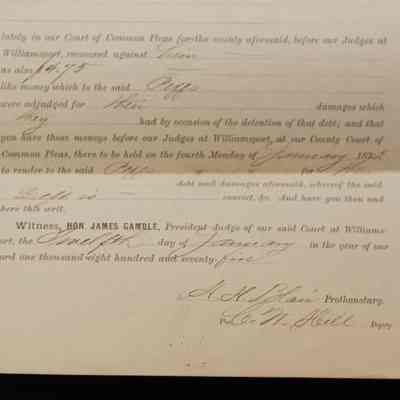 lately in our Court of Common Pleas for the county aforesaid, before our Judges at
Williamsport, recovered against
as also $4.75
like money which to the said Plffs
were adjudged for their damages which
they had by occasion of the detention of that debt; and that
you have those moneys before our Judges at Williamsport, at our County Court of
Common Pleas, there to be held on the fourth Monday of January 187
to render to the said Plffs " " " for
debt and damages aforesaid, whereof the said
Deft is convict, &c. And have you then and
there this writ.
Witness, HON. JAMES GAMBLE, President Judge of our said Court at Williams-
port, the Twelfth day of January in the year of our
Lord one thousand eight hundred and seventy-five
Blair Prothonotary.
Hill Depty